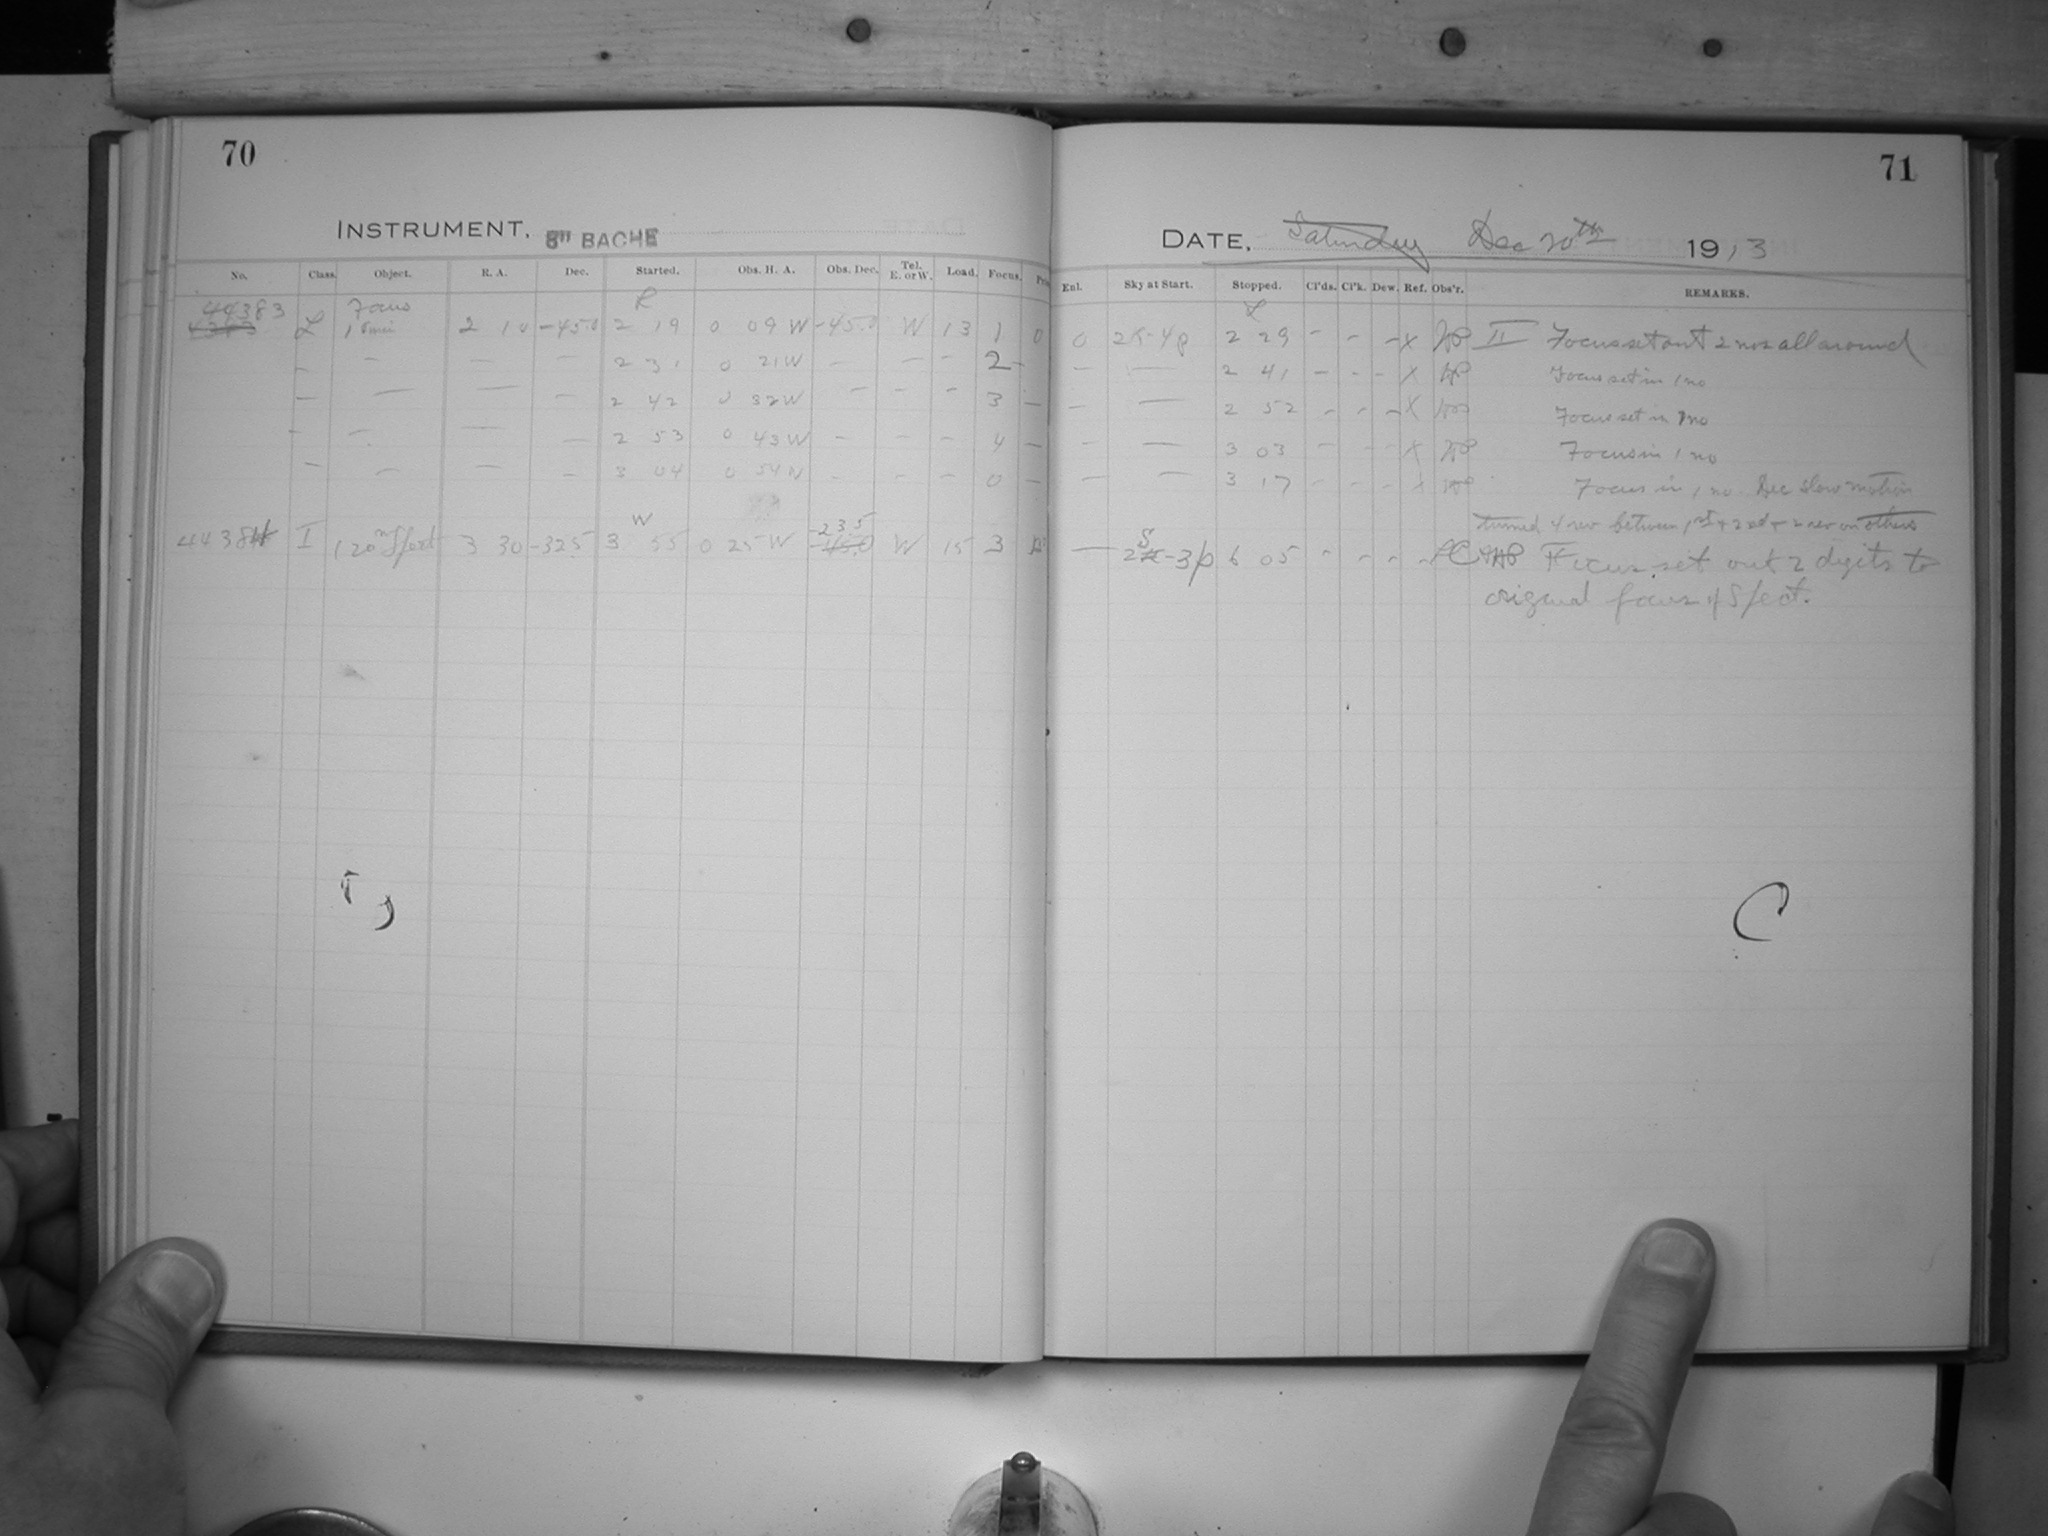 70
71
INSTRUMENT, 8" BACHE
DATE, Saturday Dec 20th 1913
No. Class. Object. R. A. Dec. Started. Obs. H. A. Obs. Dec. Tel. E. or W. Load. Focus. Enl. Sky at Start. Stopped. Cl'ds. Cl'k. Dew. Ref. Obs'r. REMARKS.
44383 Focus
L 10 min 2 10 -45.0 2 19 0 09 W -45.0 W 13 1 0 0 2 29 - - - x II Focus set out 2 nos all around
- - - - 2 31 0 21 W - - - 2 - - - 2 41 - - - x Focus set in 1 no
- - - - 2 42 0 32 W - - - 3 - - - 2 52 - - - x Focus set in 1 no
- - - - 2 53 0 43 W - - - 4 - - - 3 03 - - - x Focus in 1 no
- - - - 3 04 0 54 W - - - 0 - - - 3 17 - - - x Focus in 1 no. Dec slow motion
turned 4 rev between 1st & 2nd & 2 rev on others
44384 I 120m Spect 3 30 -32.5 3 55 0 25 W -23.5 W 15 3 - 6 05 - - - - Focus set out 2 digits to
original focus of Spect.